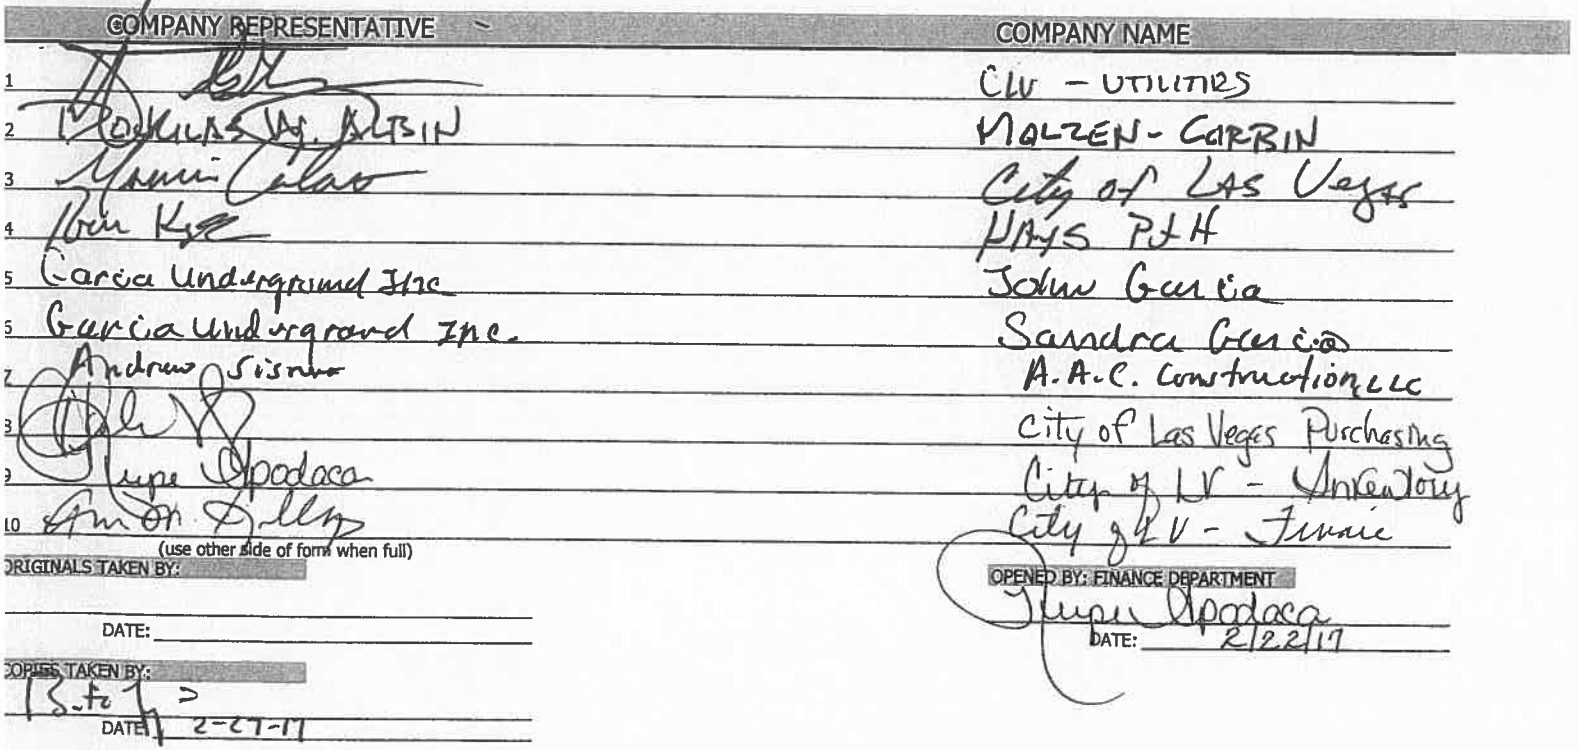 COMPANY REPRESENTATIVE COMPANY NAME
1 CLV - UTILITIES
2 DOUGLAS W. ALBIN MOLZEN-CORBIN
3 City of LAS Vegas
4 HAYS P&H
5 Garcia Underground Inc John Garcia
6 Garcia Underground Inc. Sandra Garcia
7 Andrew A.A.C. Construction LLC
8 City of Las Vegas Purchasing
9 Apodaca City of LV - Inventory
10 City of LV - Finance
(use other side of form when full)
ORIGINALS TAKEN BY: OPENED BY: FINANCE DEPARTMENT
Apodaca
DATE: DATE: 2/22/17
COPIES TAKEN BY:
DATE 2-27-17